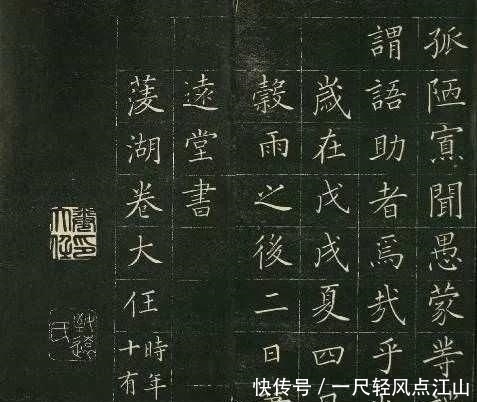 孤陋寡聞愚蒙等
謂語助者焉哉乎
歲在戊戌夏四月
穀雨之後二日
遠堂書
蓤湖卷大任時年十有
快传号 / 一尺轻风点江山